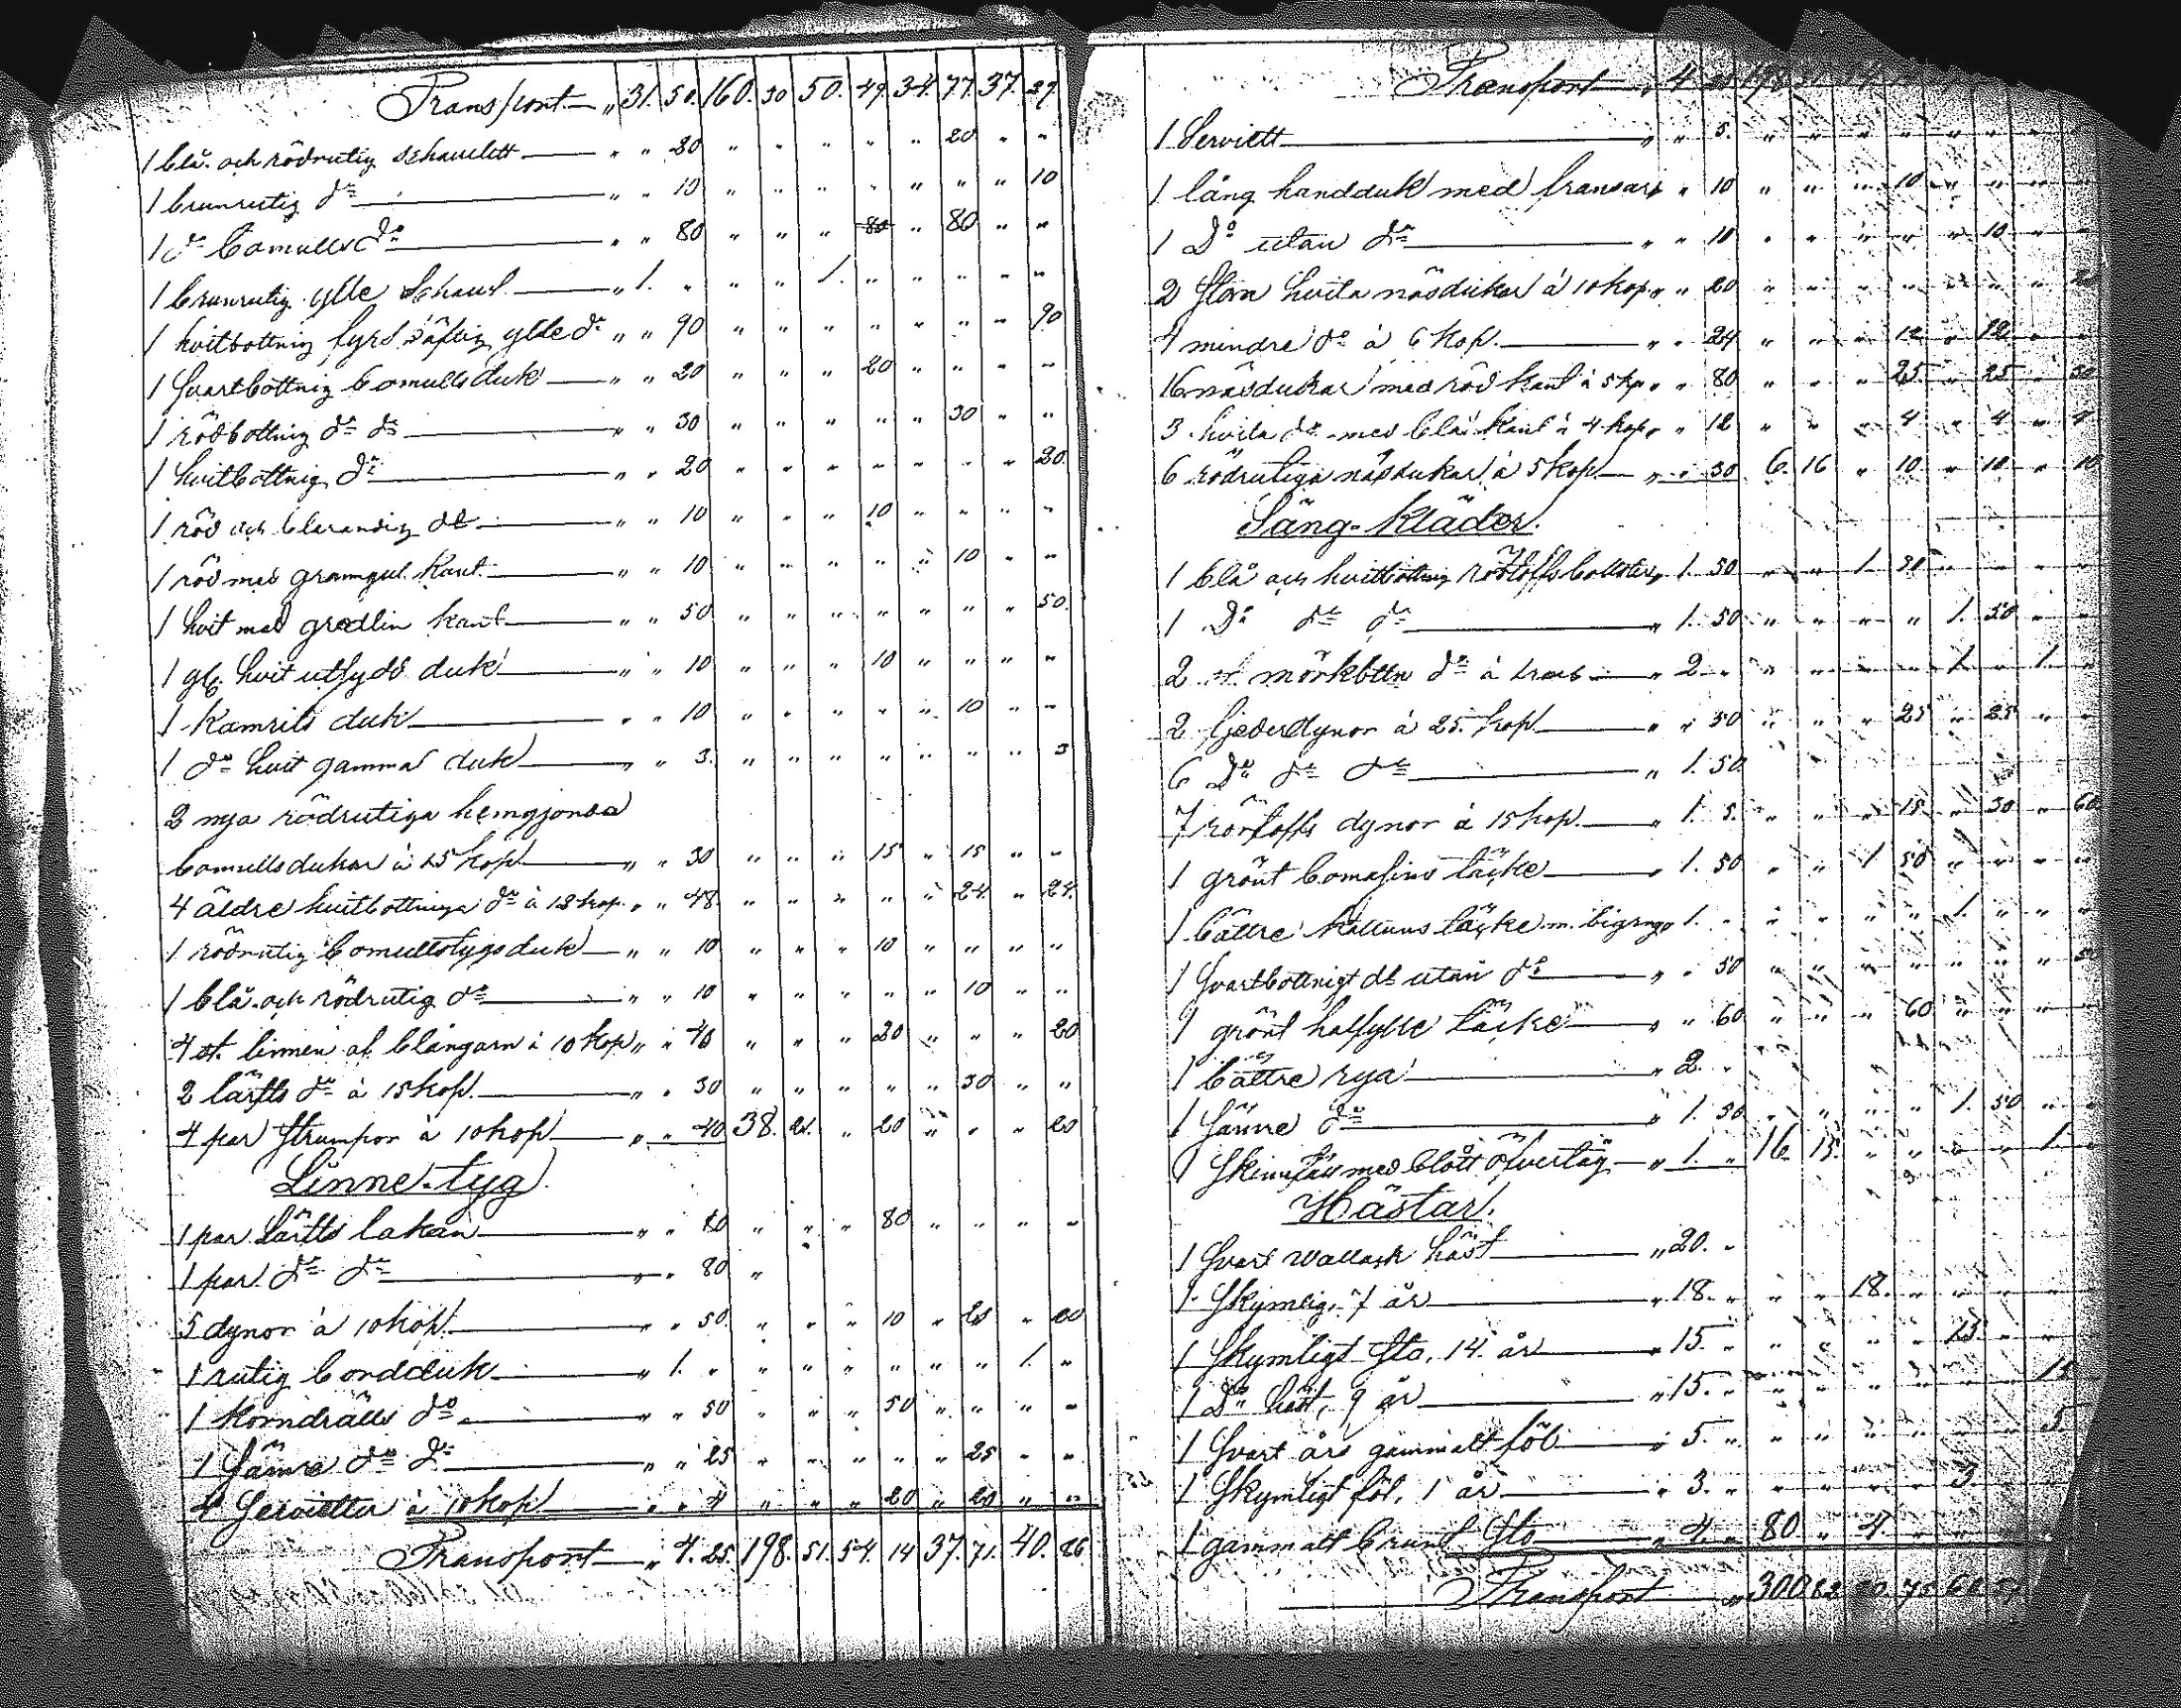 Transport „ 31. 50. 160. 30 50. 49. 34. 77. 37. 29.
1 blå och rödrutig schaulett „ „ 20 „ „ „ „ „ 20 „ „
1 brunrutig do „ „ 10 „ „ „ „ „ „ „ 10
1 do bomulls do „ „ 80 „ „ „ 80 „ 80 „ „
1 brunrutig ylle schaul „ 1. „ „ „ 1. „ „ „ „ „
1 hvitbottnig ylle do „ „ 90 „ „ „ „ „ „ „ 90
1 Svartbottnig bomullsduk „ „ 20 „ „ „ 20 „ „ „ „
1 rödbottnig do do „ „ 30 „ „ „ „ „ 30 „ „
1 hvitbottnig do „ „ 20 „ „ „ „ „ „ „ 20.
1 röd och blarandig do „ „ 10 „ „ „ 10 „ „ „ „
1 röd med kant „ „ 10 „ „ „ „ „ 10 „ „
1 hvit med gredlin kant „ „ 50 „ „ „ „ „ „ „ 50.
1 gl. hvit utsydd duk „ „ 10 „ „ „ 10 „ „ „ „
1 Kamrits duk „ „ 10 „ „ „ „ „ 10 „ „
1 do hvit gammal duk „ „ 3. „ „ „ „ „ „ „ 3
2 nya rödrutiga hemgjorda
bomullsdukar à 15 kop „ „ 30 „ „ „ 15 „ 15 „ „
4 äldre hvitbottniga do à 12 kop. „ „ 48. „ „ „ „ „ 24. „ 24.
1 rödrutig bomullstygsduk „ „ 10 „ „ „ 10 „ „ „ „
1 blå och rödrutig do „ „ 10 „ „ „ „ „ 10 „ „
4 st. linnen af blångarn à 10 kop „ „ 40 „ „ „ 20 „ „ „ 20
2 lärfts do à 15 kop. „ „ 30 „ „ „ „ „ 30 „ „
4 par Strumpor à 10 kop „ „ 40 38. 21. „ 20 „ „ „ 20
Linne-tyg.
1 par Lärfts lakan „ „ 80 „ „ „ 80 „ „ „ „
1 par do do „ „ 80 „
5 dynor à 10 kop. „ „ 50. „ „ „ 10 „ 20 „ 20
1 rutig bordduk „ 1. „ „ „ „ „ „ „ 1. „
1 Korndrälls do „ „ 50 „ „ „ 50 „ „ „ „
1 Sämre do do „ „ 25 „ „ „ „ „ 25 „ „
4 Servietter à 10 kop „ „ 4 „ „ „ 20 „ 20 „ „
Transport „ 4. 25. 198. 51. 54. 14 37. 71. 40. 26
Transport „ 4 198
1 Serviett „ „ 5. „ „ „ „ „ „ „
1 lång handduk med fransar „ „ 10 „ „ „ 10 „ „ „
1 Do utan do „ „ 10 „ „ „ „ „ 10 „
2 Stora hvita näsdukar à 10 kop „ „ 20 „ „ „ „ „ „ „ 20
4 mindre do à 6 kop. „ „ 24 „ „ „ 12 „ 12 „
16 näsdukar med röd kant à 5 kp „ „ 80 „ „ „ 25. „ 25 „ 30
3 hvita do med blå kant à 4 kop „ „ 12 „ „ „ 4 „ 4 „ 4
6 rödrutiga näsdukar à 5 kop „ „ 30 6. 16 „ 10 „ 10 „ 10
Säng-kläder.
1 blå och hvitbottnig bolster „ 1. 50 „ „ 1. 50 „ „ „ „
1 Do do do „ 1. 50 „ „ „ „ 1. 50 „ „
2 st. mörkbttn do à 1 rub „ 2 „ „ „ „ „ 1. „ 1. „
2 fjederdynor à 25. kop „ „ 50 „ „ „ 25 „ 25 „ „
6 Do do do „ 1. 50.
7 dynor à 15 kop. „ 1. 5. „ „ „ 15. „ 30 „ 60
1 grönt täcke „ 1. 50 „ „ 1 50 „ „ „ „
1 bättre kattuns täcke m. „ 1. „ „ „ „ „ 1. „ „ „
1 Svartbottnigt do utan do „ „ 50 „ „ „ „ „ „ „ 50
1 grönt halfylle täcke „ „ 60 „ „ „ 60 „ „ „ „
1 bättre rya „ 2. „
1 Sämre do „ 1. 50 „ „ „ „ 1. 50 „ „
1 Skinnfäll med blått öfvertåg „ 1. „ 16. 15. „ „ „ „ 1. „
Hästar.
1 Svart Wallack häst „ 20. „
1 Skymlig, 7 år „ 18. „ „ „ 18. „ „ „ „ „
1 Skymligt Sto, 14. år „ 15 „ „ „ „ „ 15. „ „ „
1 Do häst, 9 år „ 15. „ „ „ „ „ „ „ 15
1 Svart års gammalt föl „ 5. „ „ „ „ „ „ „ 5.
1 Skymligt föl, 1 år „ 3. „ „ „ „ „ 3 „
1 gammalt brunt Sto „ 4. „ 80. „ 4. „ „
Transport „ 300. 82